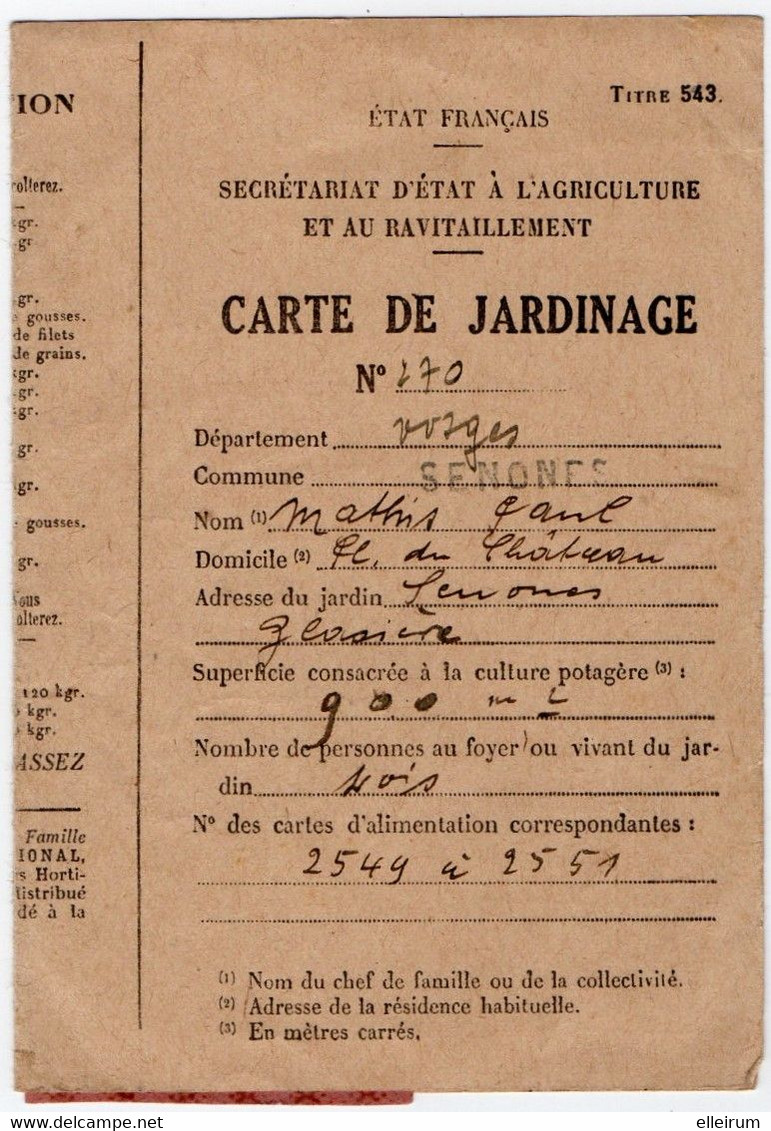 TION
olterez.
gr.
gr
gr.
gousses.
de filets
de grains.
kgr.
gr.
gr.
gr.
gr.
gousses.
gr.
Vous
olterez.
120 kgr.
kgr.
kgr.
ASSEZ
Famille
IONAL,
s Horti-
distribué
dé à la
TITRE 543.
ÉTAT FRANÇAIS
SECRÉTARIAT D'ÉTAT À L'AGRICULTURE
ET AU RAVITAILLEMENT
CARTE DE JARDINAGE
N° 270
Département Vosges
Commune SENONES
Nom (1) Mathis Paul
Domicile (2) Pl. du Château
Adresse du jardin Senones
Glasière
Superficie consacrée à la culture potagère (3) :
900 m2
Nombre de personnes au foyer ou vivant du jar-
din trois
N° des cartes d'alimentation correspondantes :
2549 à 2551
(1) Nom du chef de famille ou de la collectivité.
(2) Adresse de la résidence habituelle.
(3) En mètres carrés.
delcampe.net
elleirum